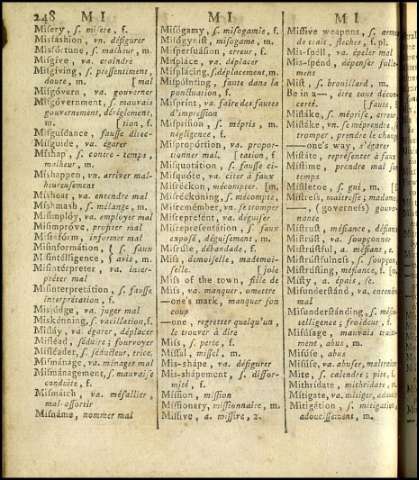 248 M I M I M I
Misery, s. misere, f.
Misfashion, vn. défigurer
Misfortune, s. malheur, m.
Misgive, va. craindre
Misgiving, s. pressentiment,
doute, m. [mal
Misgóvern, va. gouverner
Misgóvernment, s. mauvais
gouvernement, déréglement,
m. [tion, f.
Misguídance, fausse direc-
Misguíde, va. égarer
Mishap, s. contre-temps,
malheur, m.
Mishappen, vn. arriver mal-
heureusement
Mishear, va. entendre mal
Mishmash, s. mélange, m.
Misimplóy, va. employer mal
Misimpróve, profiter mal
Misinfórm, informer mal
Misinformation, { s. faux
Misintélligence, { avis, m.
Misintérpreter, va. inter-
préter mal
Misinterpretátion, s. fausse
interprétation, f.
Misjúdge, va. juger mal
Miskénning, s. vacillation, f.
Misláy, va. égarer, déplacer
Misléad, séduire; fourvoyer
Misléader, s. séducteur, trice,
Mismánage, va. ménager mal
Mismánagement, s. mauvaise
conduite, f.
Mismátch, va. mésallier,
mal-assortir
Misnáme, nommer mal
Misógamy, s. misogamie, f.
Misógynist, misogame, m.
Misperfuásion, erreur, f.
Mispláce, va. déplacer
Misplácing, s. déplacement, m.
Mispóinting, faute dans la
ponctuation, f.
Misprint, va. faire des fautes
d'impression
Misprision, s. mépris, m.
négligence, f.
Mispropórtion, va. propor-
tionner mal, [tation, f
Misquotátion, s. fausse ci-
Misquóte, va. citer à faux
Misréckon, mécompter. [m.
Misréckoning, s. mécompte,
Misremémber, vn. se tromper
Misreprefént, va. déguiser
Misreprefentátion, s. faux
exposé, déguisement, m.
Misrúle, débandade, f.
Miss, demoiselle, mademoi-
selle. [joie
Miss of the town, fille de
Miss, va. manquer, omettre
—one's mark, manquer son
coup
—one, regretter quelqu'un,
le trouver à dire
Miss, s. perte, f.
Missal, missel, m.
Mis-shápe, va. défigurer
Mis-shápement, s. diffor-
mité, f.
Mission, mission
Míssionary, missionnaire, m.
Míssive, a. missive, 2.
Míssive weapons, s. armes
de trait, fleches, f. pl.
Mis-spéll, va. épeler mal
Mis-spénd, dépenser mal
employer
Mist, s. brouillard, m.
Be in a —, être tout décon-
certé. [faute,
Mistáke, s. méprise, erreur,
Mistáke, vn. se méprendre,
tromper, prendre le change
—one's way, s'égarer
Misstáte, représenter à faux
Mistíme, prendre mal
temps
Místletoe, s. gui, m.
Místress, maîtresse, madame
——, (governess) gouver-
nante
Mistrúst, méfiance, défiance
Mistrúst, va. soupçonner
Mistrústful, a. méfiant, e.
Mistrústfulness, s. soupçon,
Mistrústing, méfiance, f.
Místy, a. épais, se.
Misunderstánd, va. entendre
mal
Misunderstánding, s. mésin-
telligence; froideur, f.
Misúsage, mauvais traite-
ment, abus, m.
Misúse, abus
Misúse, va. abuser, maltraiter
Mite, s. calendre; pite, f.
Míthridate, mithridate,
Mítigate, va. mitiger, adoucir
Mitigátion, s. mitigation,
adoucissement, m.